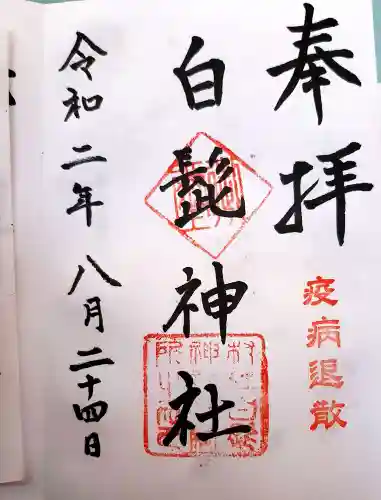 奉拝
疫病退散
白髭神社
令和二年 八月二十四日